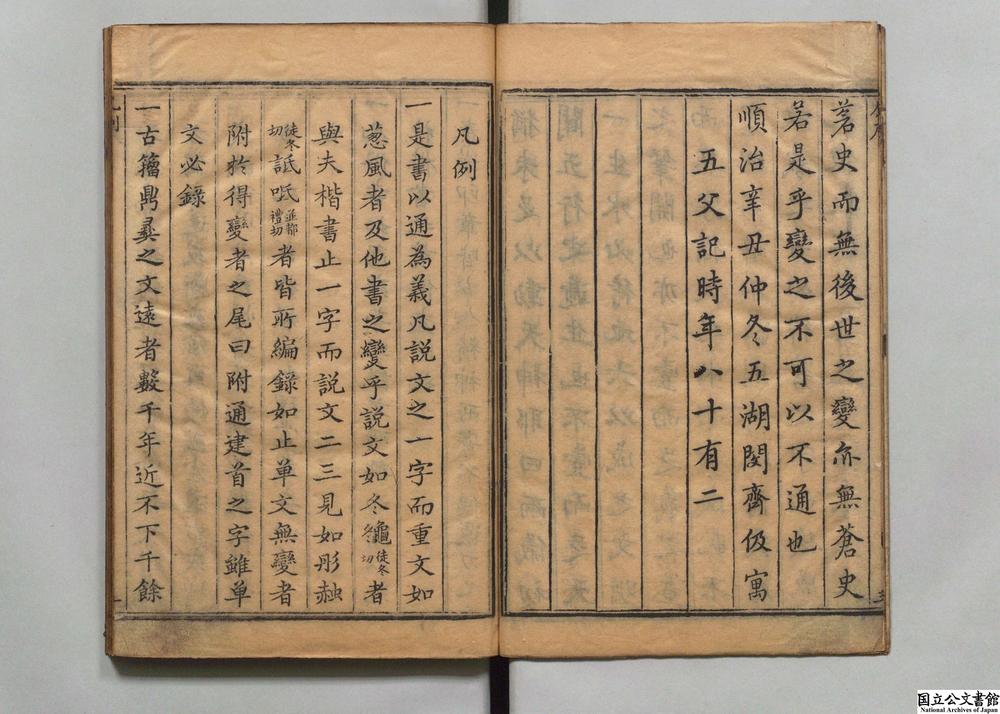 茗史而無後世之變亦無蒼史
若是乎變之不可以不通也
順治辛丑仲冬五湖閔齊伋寓
五父記時年八十有二
凡例
一是書以通為義凡説文之一字而重文如
蔥風者及他書之變乎説文如冬䆬徒冬切者
與夫楷書止一字而説文二三見如彤赨
徒冬切詆呧並都禮切者皆所編錄如止单文無變者
附於得變者之尾曰附通建首之字雖单
文必錄
一古籀鼎彞之文遠者數千年近不下千餘
国立公文書館
National Archives of Japan